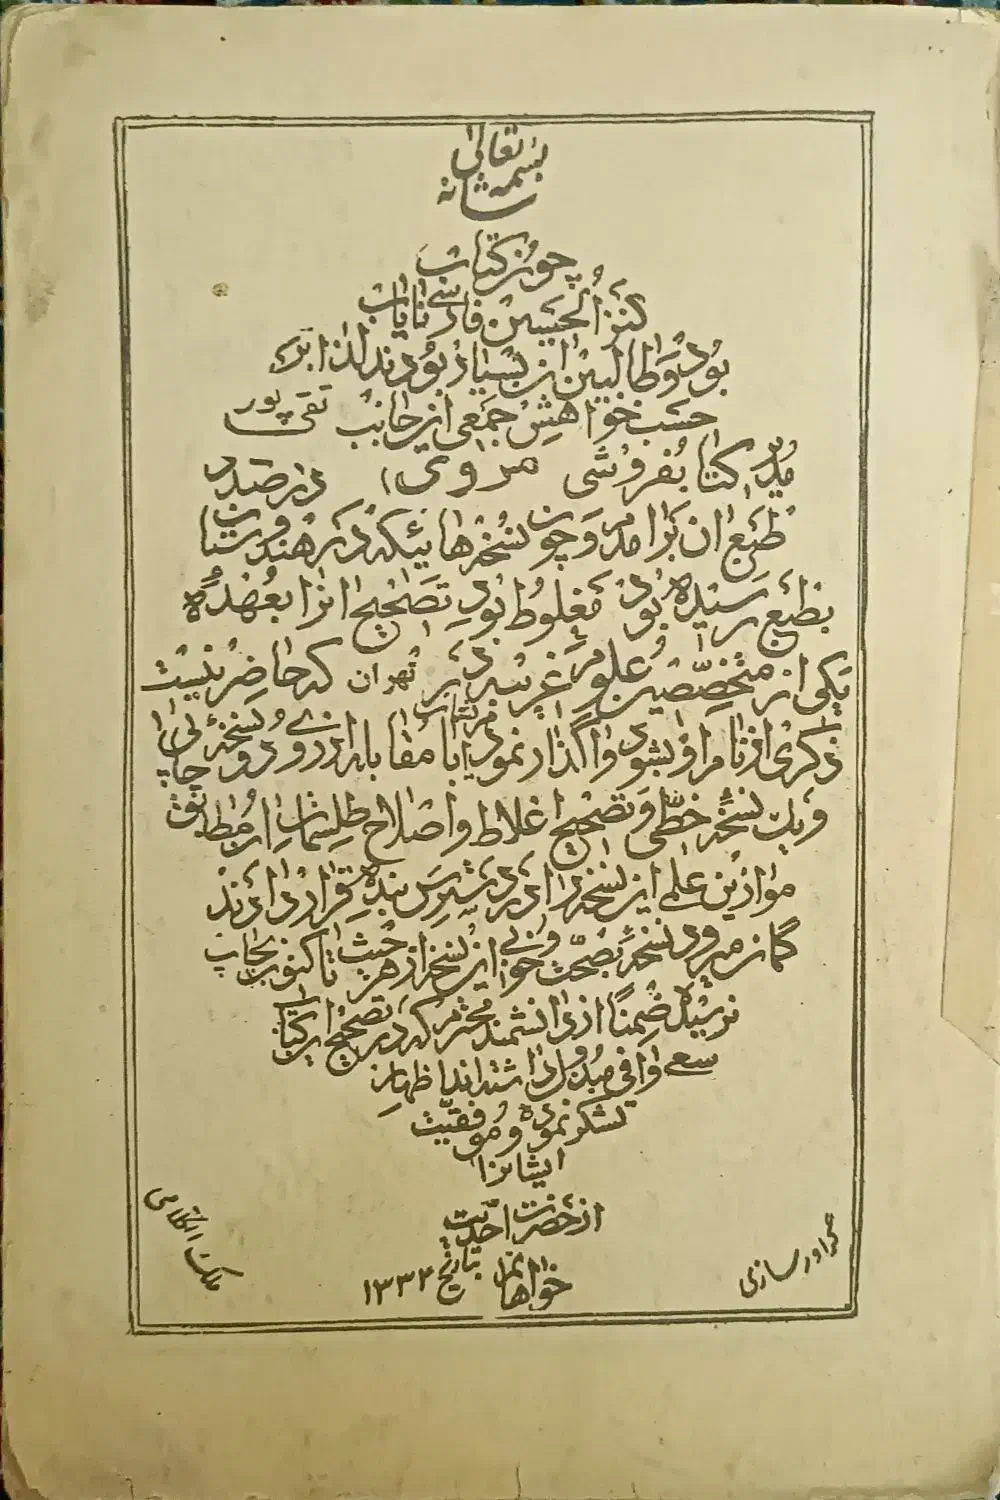 بسمه تعالی
شانه
چون کتاب
کنز الحسین فارسی نایاب
بود و طالبین ان بسیار بودند لذا بر
حسب خواهش جمعی از جانب تقی پور
مدیر کتابفروشی مروی در صدد
طبع ان برامده و چون نسخه هائیکه در هندوستان
بطبع رسیده بود مغلوط بود تصحیح انرا بعهده
یکی از متخصصین علوم غریبه در تهران که حاضر نیست
ذکری از نام او بشود واگذار نموده با مقابله از روی دو نسخه چاپی
و یک نسخه خطی و تصحیح اغلاط و اصلاح طلسمات ان مطابق
موازین علمی این نسخه را در دسترس بنده قرار دادند
گمان میرود نسخه بصحت و خوبی این نسخه از هر حیث تا کنون بچاپ
نرسیده ضمنا از دانشمند محترم که در تصحیح این کتاب
سعی وافی مبذول داشته اند اظهار
تشکر نموده و موفقیت
ایشانرا
از حضرت احدیت
خواهانم بتاریخ ۱۳۳۲
گراور سازی